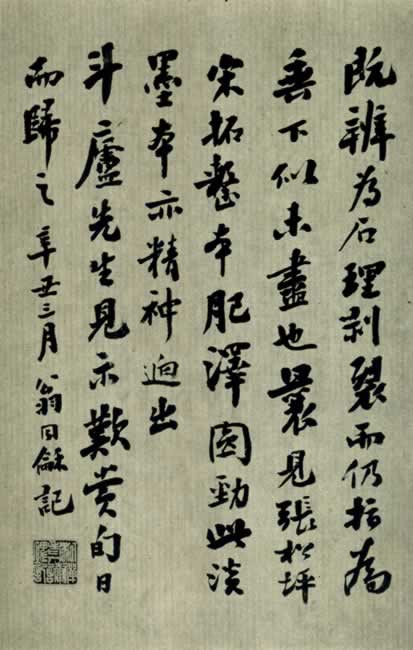 既辨為石理剥裂而仍指為
垂下似未盡也曩見張松坪
宋拓整本肥澤圓勁此淡
墨本亦精神逈出
斗廬先生見示歎賞旬日
而歸之辛丑三月翁同龢記